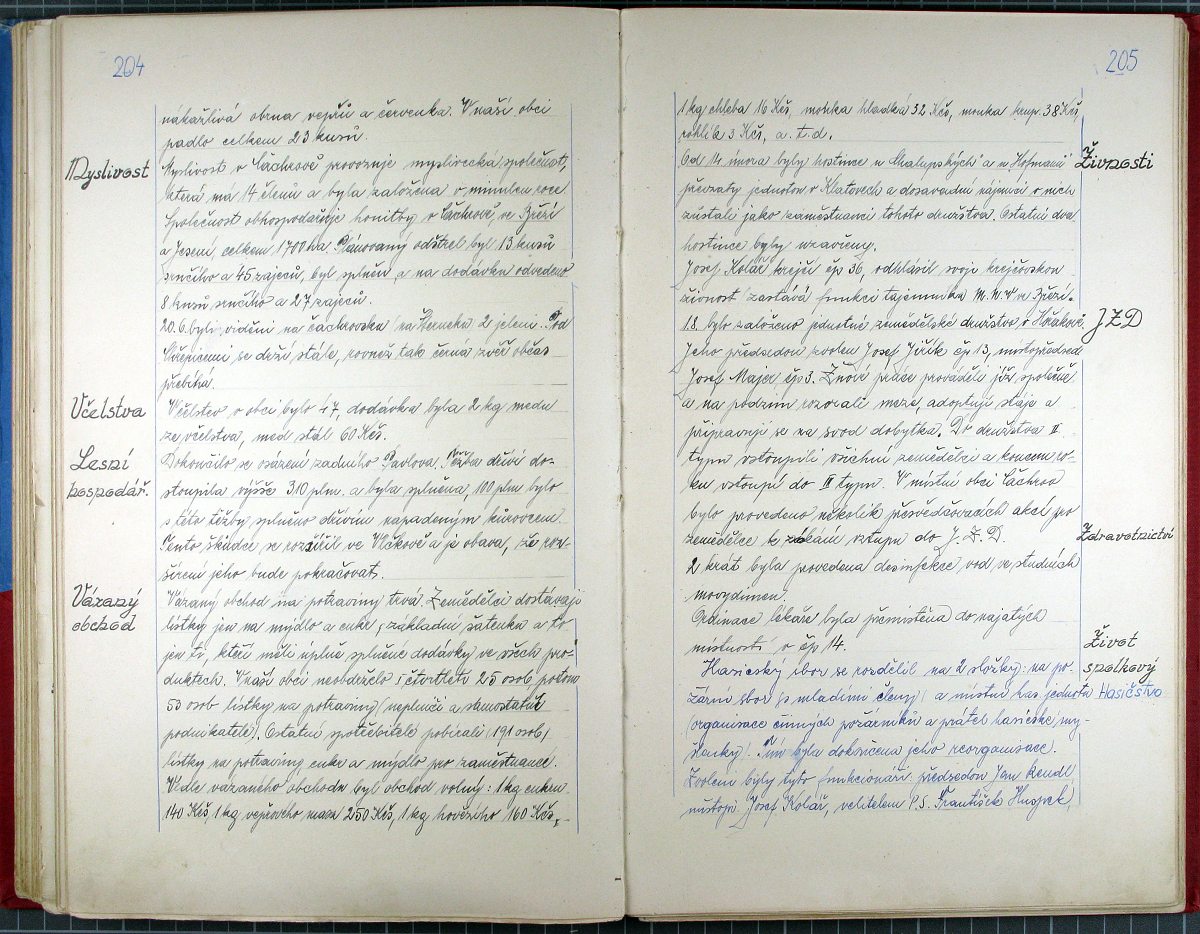 204
nákažlivá obrna vepřů a červenka. V naší obci
padlo celkem 23 kusů.
Myslivost
Myslivost v Čachrově provozuje myslivecká společnost,
která má 14 členů a byla založena v minulém roce
Společnost obhospodařuje honitby v Čachrově ve Březí
a Jesení, celkem 1700 ha. Plánovaný odstřel byl 13 kusů
srnčího a 45 zajeců, byl splněn, a na dodávku odvedeno
8 kusů srnčího a 27 zajeců.
20.6. byli viděni na čachrovsku /na 2 jeleni. Pod
se drží stále, rovněž tak černá zvěř občas
přebíhá.
Včelstva
Včelstev v obci bylo 47 dodávka byla 2 kg medu
ze včelstva, med stál 60 Kčs.
Lesní
hospodář.
Dokončilo se osázení zadního Pavlova. Těžba dříví do-
stoupila výše 310 plm. a byla splněna, 100 plm bylo
s této těžby splněno dřívím napadeným kůrovcem.
Tento škůdce se rozšířil ve Vlčkově a je obava, že roz-
šíření jeho bude pokračovat.
Vázaný
obchod
Vázaný obchod na potraviny trvá. Zemědělci dostávají
lístky jen na mýdlo a cukr, základní šatenku a to
jen ti, kteří měli úplně splněné dodávky ve všech pro-
duktech. V naší obci neobdrželo I čtvrtletí 25 osob, potom
53 osob lístky na potraviny /neplniči a samostatně
podnikatelé/. Ostatní spotřebitelé pobírali /191 osob/
lístky na potraviny cukr a mýdlo pro zaměstnance.
Vedle vázaného obchodu byl obchod volný: 1 kg cukru
140 Kčs, 1 kg vepřového masa 250 Kčs, 1 kg hovězího 160 Kčs,-
205
1 kg chleba 16 Kčs, mouka hladká 32 Kčs, mouka krup. 38 Kčs,
rohlík 3 Kčs, a. t. d.
Živnosti
Od 14. února byly hostince u Chalupských a u Hofmanů
převzaty jednotou v Klatovech a dosavadní nájemci v nich
zůstali jako zaměstnanci tohoto družstva. Ostatní dva
hostince byly uzavřeny.
Josef Kolář krejčí čp 36, odhlásil svoji krejčovskou
živnost /zastává funkci tajemníka M.N.V ve Březí.
JZD
1.8. bylo založeno jednotné zemědělské družstvo v
Jeho předsedou zvolen Josef Jiřík čp 13, místopředsede
Josef Majer čp 3. Žňové práce prováděli již společně
a na podzim rozorali meze, adoptují stáje a
připravují se na svod dobytka. Do družstva II
typu vstoupili všichni zemědělci a koncem ro-
ku vstoupí do III typu. V místní obci Čachrov
bylo provedeno několik přesvědčovacích akcí pro
zemědělce k získání vstupu do J. Z. D.
Zdravotnictví
2 krát byla provedena desinfekce vod ve studních
Ordinace lékaře byla přemístěna do najatých
místností v čp 14.
Život
spolkový
Hasičstvo
Hasičský sbor se rozdělil na 2 složky: na po-
žární sbor /s mladými členy/ a místní has. jednotu
/organisace činných požárníků a přátel hasičské my-
šlenky/. Tím byla dokončena jeho reorganisace.
Zvoleni byly tyto funkcionáři: předsedou Jan Rendl,
místopř. Josef Kolář, velitelem P.S. František Huspek,